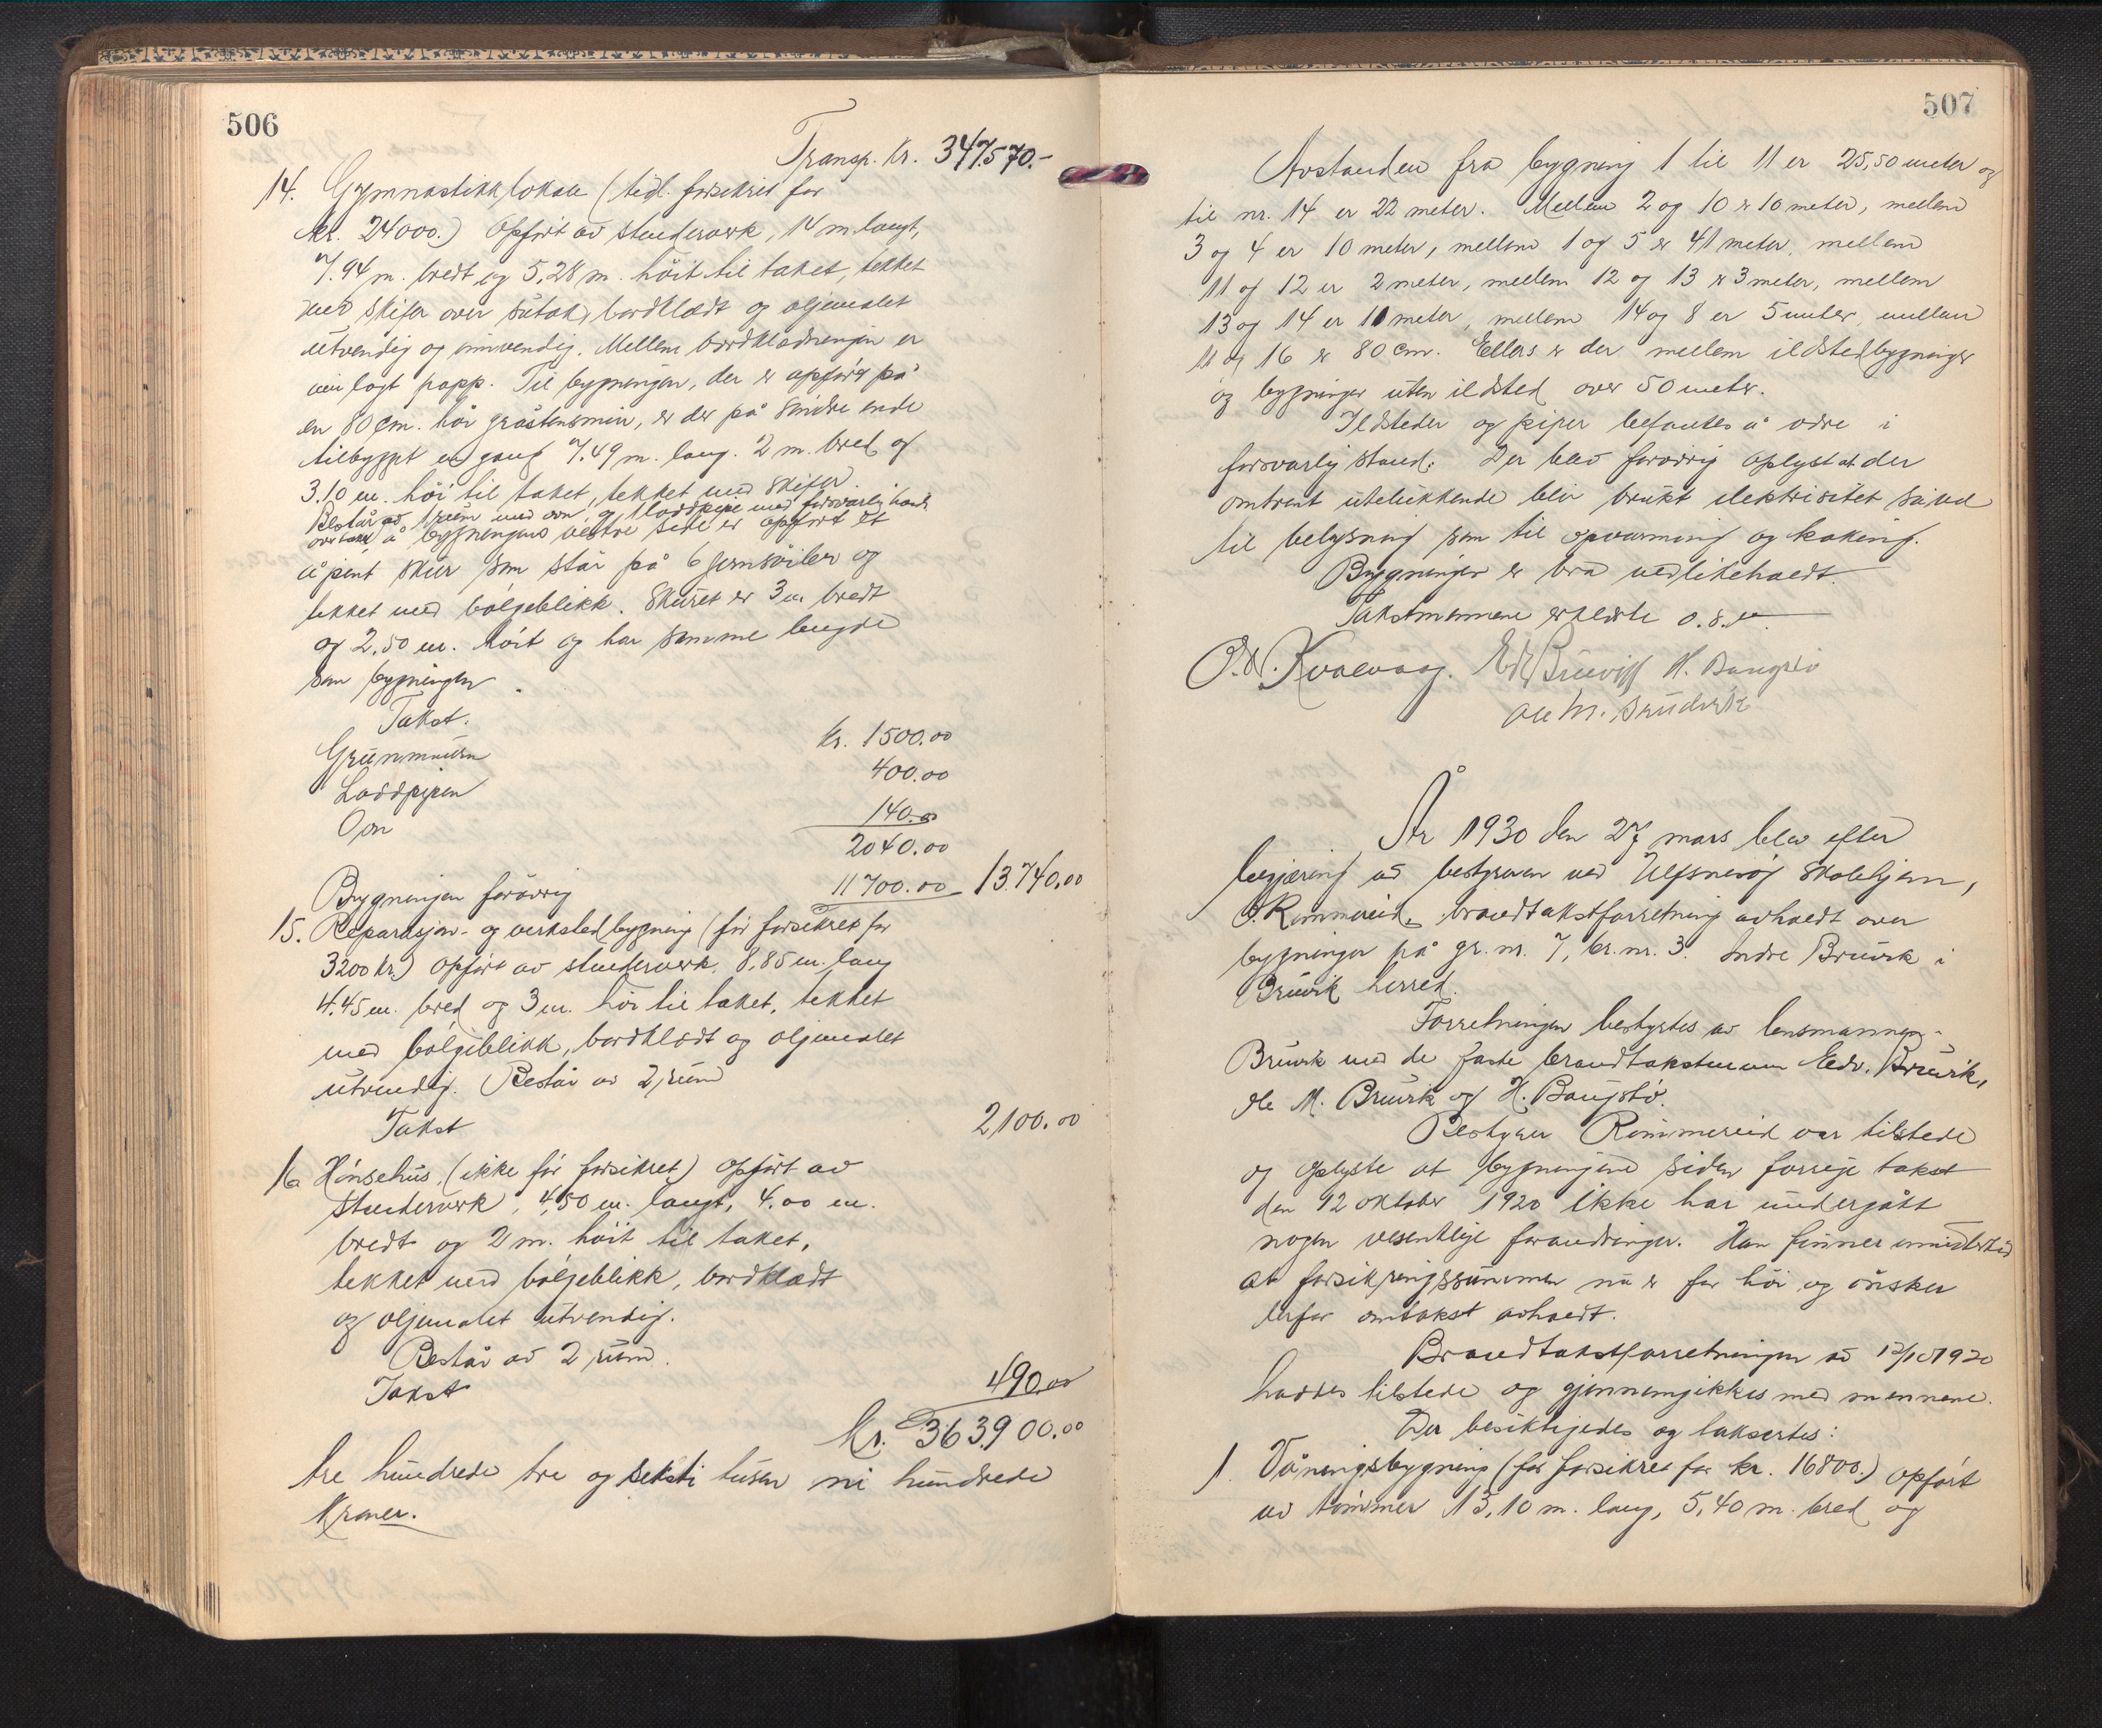 506
Transp. Kr. 347570.-
14. Gymnastikklokale (tidl. forsikret for
kr. 24000.) Opført av stenderverk, 14 m. langt,
7.94 m. bredt og 5,28 m. höit til taket, tekket
med skifer over sutak, bordklædt og oljemalet
utvendig og innvendig. Mellem bordklædningen er
inlagt papp. Til bygningen, der er opført på
en 80 cm. höi gråstensmur, er der på söndre ende
tilbygget en gang 7.49 m. lang. 2 m. bred og
3.10 m. höi til taket, tekket med skifer.
Består av 1 rum med ovn og 1 loddpipe med forsvarlig
over taket. På bygningens vestre side er opført et
åpent skur som står på 6 jernsöiler og
tekket med bölgeblikk. Skuret er 3 m bredt
og 2.50 m. höit og har samme lengde
som bygningen.
Takst.
Grunnmuren kr. 1500.00
Loddpipen 400.00
Ovn 140.00
2040.00
Bygningen forövrig 11700.00 13.740.00
15. Reparasjon- og verkstedbygning (för forsikret for
3200 kr.) Opført av stenderverk, 8,85 m. lang
4.45 m. bred og 3 m. höi til taket, tekket
med bölgeblikk, bordklædt og oljemalet
utvendig. Består av 2 rum
Takst 2100.00
16 Hönsehus, (ikke för forsikret) opført av
stenderverk, 4,50 m. langt, 4.00 m.
bredt og 2 m. höit til taket,
tekket med bölgeblikk, bordklædt
og oljemalet utvendig.
Består av 2 rum.
Takst 490.00
Kr. 363900.00
tre hundrede tre og seksti tusen ni hundrede
Kroner.
507
Avstanden fra bygning 1 til 11 er 25,50 meter og
til nr. 14 er 22 meter. Mellem 2 og 10 er 10 meter, mellem
3 og 4 er 10 meter, mellem 1 og 5 er 41 meter, mellem
11 og 12 er 2 meter, mellem 12 og 13 er 3 meter, mellem
13 og 14 er 11 meter, mellem 14 og 8 er 5 meter, mellem
11 og 16 er 80 cm. Ellers er der mellem ildstedbygninger
og bygninger uten ildsted over 50 meter.
Ildsteder og piper befantes å være i
forsvarlig stand. Der blev forövrig oplyst at der
omtrent utelukkende blir brukt elektrisitet såvel
til belysning som til opvarming og koking.
Bygningen er bra vedlikeholdt.
Takstmennene erklærte o. s. v.
O. Kvalvaag. Edv Bruvik H. Baugstö
Ole M. Bruvik
År 1930 den 27 mars blev efter
begjæring av bestyreren ved Ulfsnesöy Skolehjem,
Rommereid, brandtakstforretning avholdt over
bygninger på gr. nr. 7, br. nr. 3. Indre Bruvik i
Bruvik herred.
Forretningen bestyrtes av lensmannen i
Bruvik med de faste brandtakstmenn Edv. Bruvik,
Ole M. Bruvik og H. Baugstö.
Bestyrer Rommereid var tilstede
og oplyste at bygningene siden forrige takst
den 12 oktober 1920 ikke har undergått
nogen vesentlige forandringer. Han finner imidlertid
at forsikringssummen nu er for höi og önsker
derfor omtakst avholdt.
Brandtakstforretningen av 12/10 1920
haddes tilstede og gjennemgikkes med mennene.
Der besiktigedes og taksertes:
1. Våningsbygning (för forsikret for kr. 16800.) opført
av tömmer 13,10 m. lang, 5,40 m. bred og